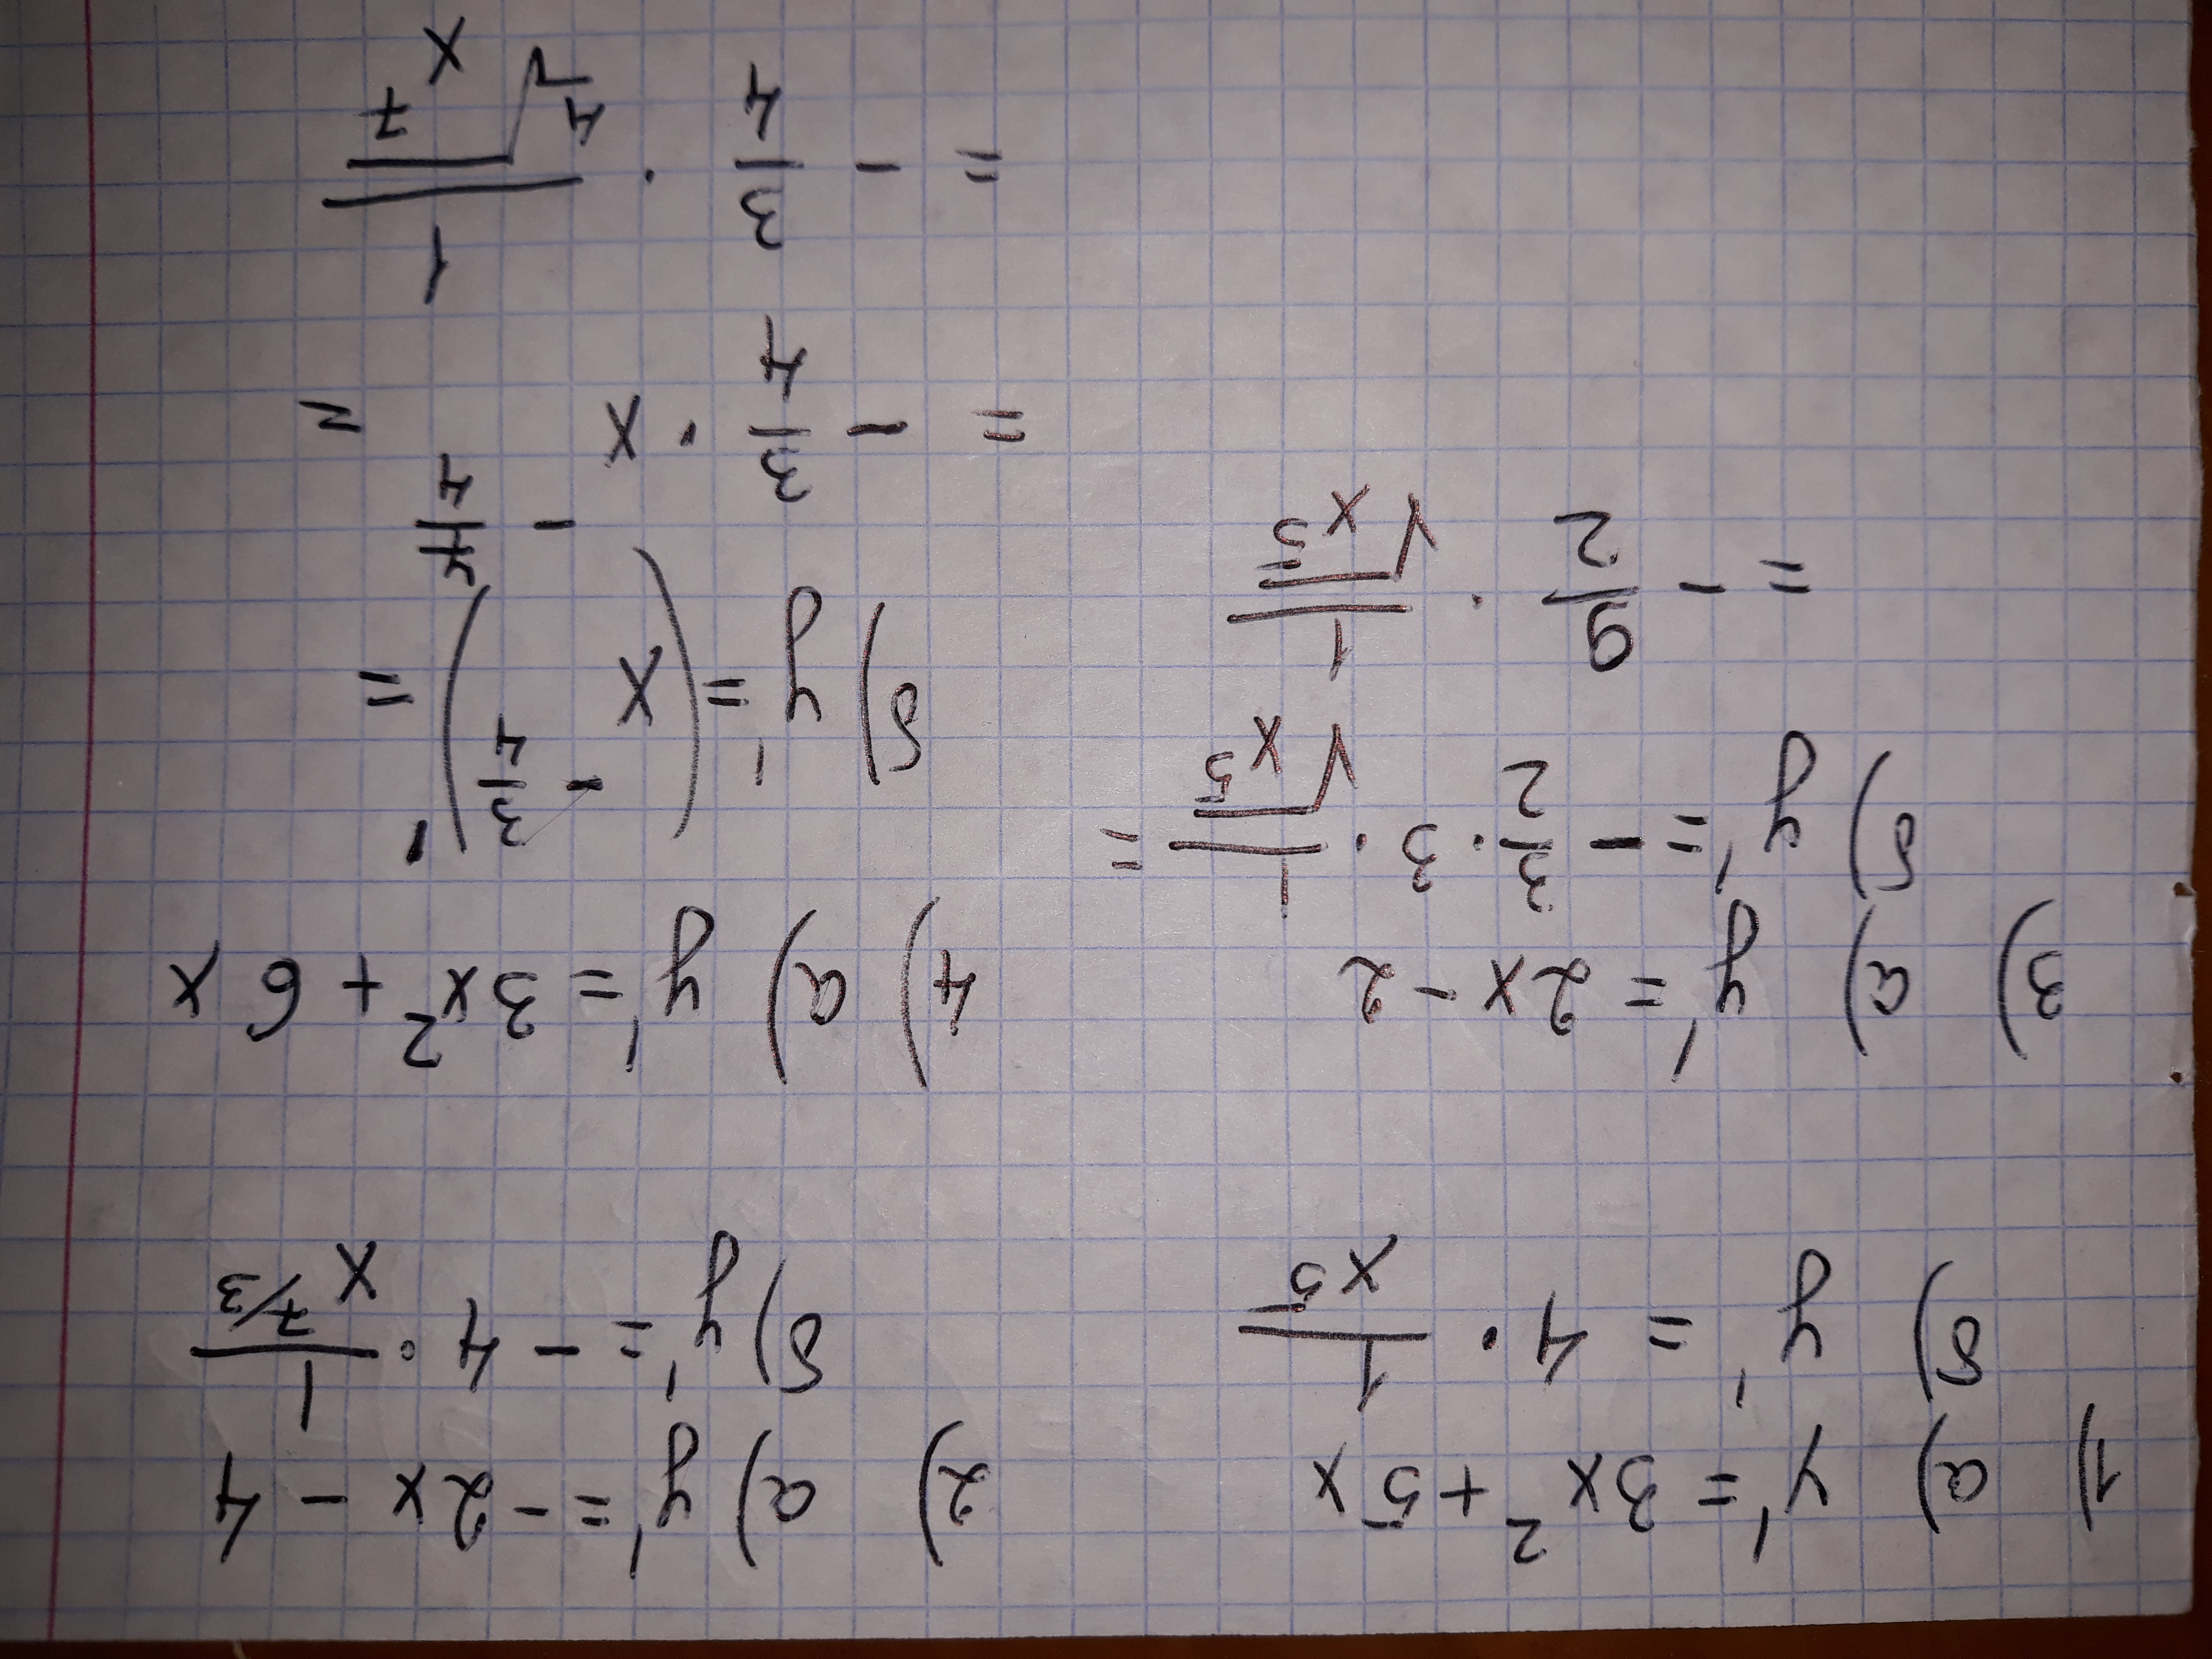 1) a) y' = 3x² + 5x
б) y' = 4 · 1/x⁵
2) a) y' = -2x - 4
б) y' = -4 · 1/x^(7/3)
3) a) y' = 2x - 2
б) y' = - 3/2 · 3 · 1/√x⁵ =
= - 9/2 · 1/√x⁵
4) a) y' = 3x² + 6x
б) y' = (x^(-3/4))' =
= - 3/4 · x^(-7/4) =
= - 3/4 · 1/⁴√x⁷